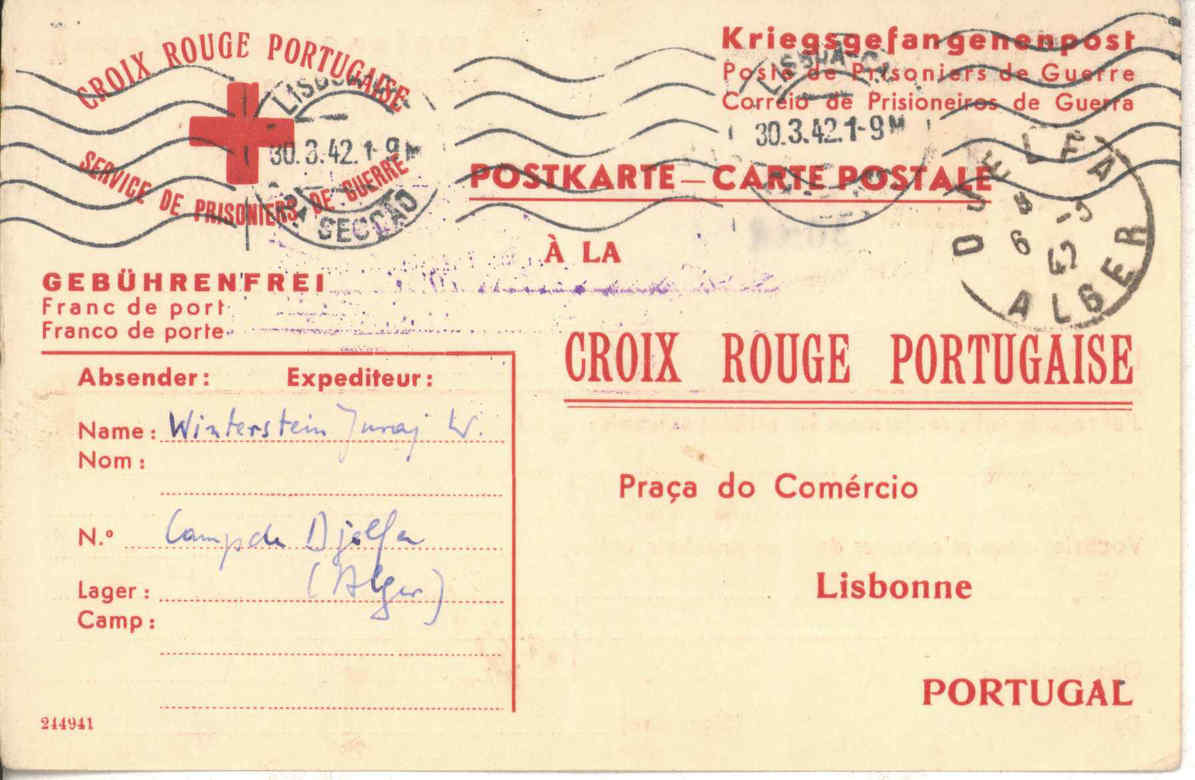 CROIX ROUGE PORTUGAISE
SERVICE DE PRISONIERS DE GUERRE
30.3.42.1-9M
SECÇÃO
Kriegsgefangenenpost
Poste de Prisoniers de Guerre
Correio de Prisioneiros de Guerra
30.3.42.1-9M
POSTKARTE — CARTE POSTALE
DJELFA
ALGER
À LA
CROIX ROUGE PORTUGAISE
GEBÜHRENFREI
Franc de port
Franco de porte
Absender: Expediteur:
Name: Winterstein Juraj W.
Nom:
N.º Camp de Djelfa
Lager: (Alger)
Camp:
Praça do Comércio
Lisbonne
PORTUGAL
244941